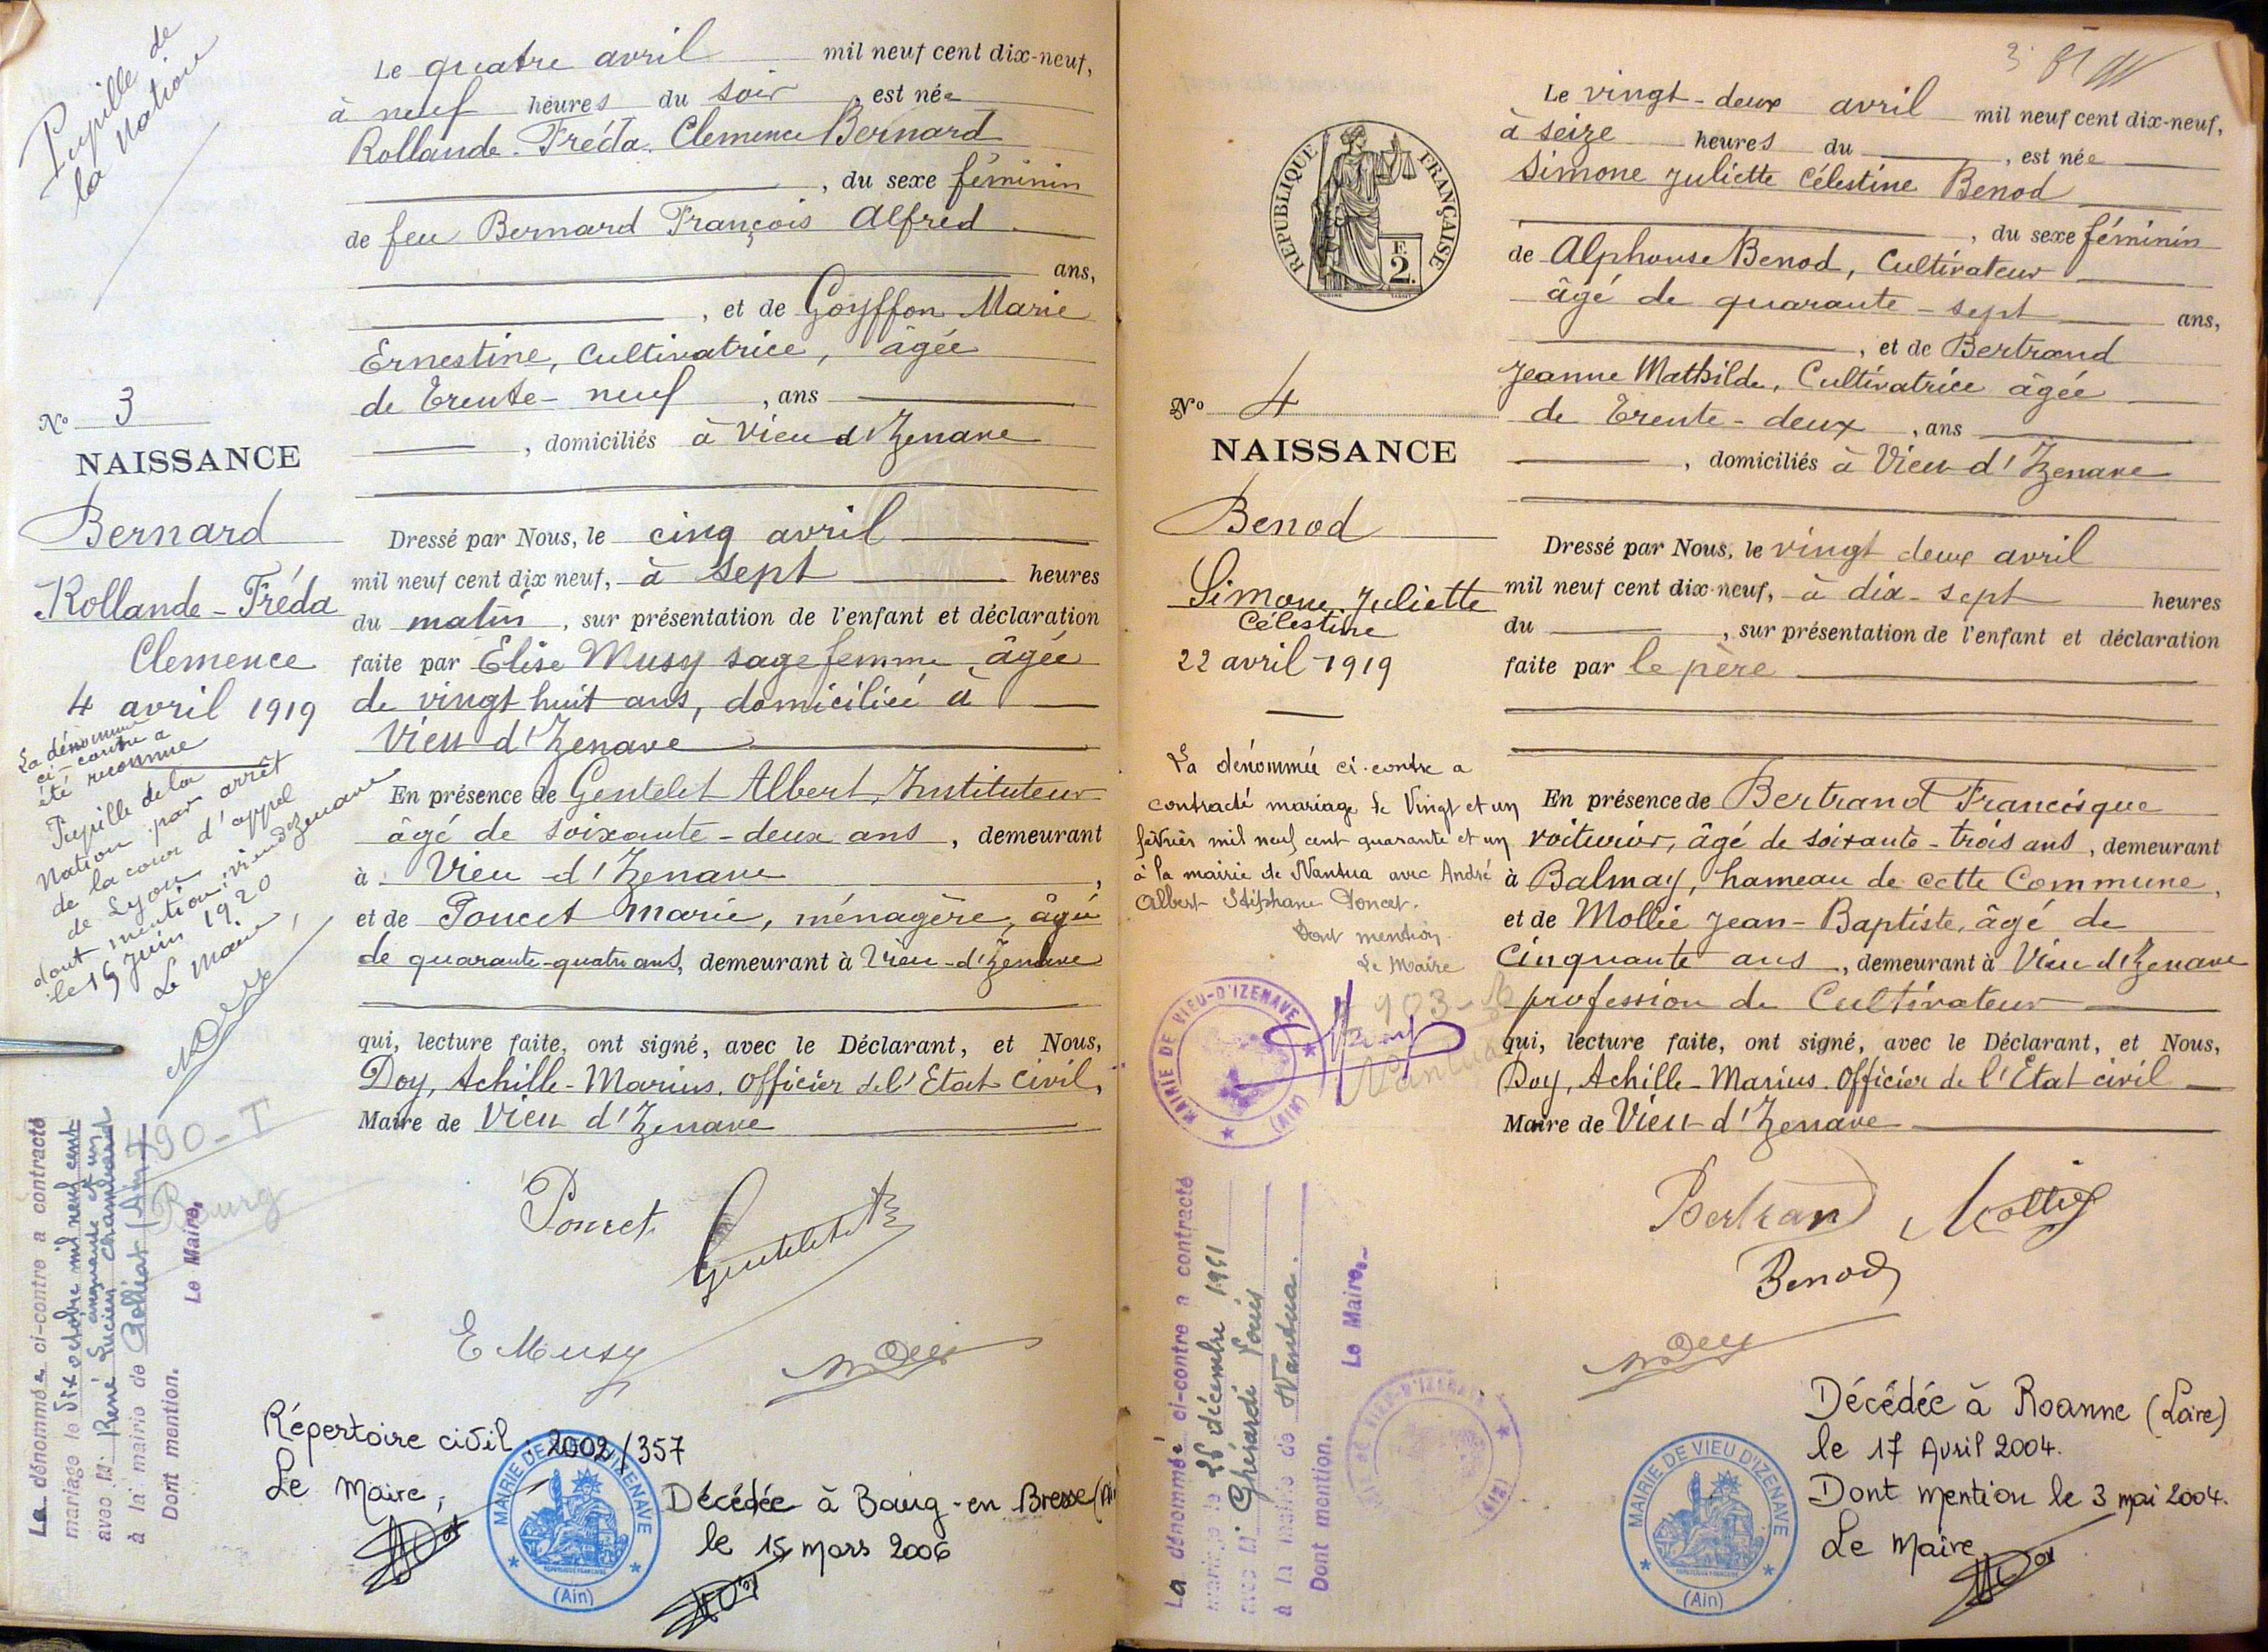 Pupille de
la Nation
Le quatre avril mil neuf cent dix-neuf,
à neuf heures du soir, est née
Rollande. Fréda. Clemence Bernard
, du sexe féminin
de feu Bernard François Alfred
ans,
, et de Goyffon Marie
Ernestine, Cultivatrice, âgée
de Trente-neuf, ans
, domiciliés à Vieu d'Izenave
Dressé par Nous, le cinq avril
mil neuf cent dix neuf, à sept heures
du matin, sur présentation de l'enfant et déclaration
faite par Elise Musy sage femme, âgée
de vingt huit ans, domiciliée à
Vieu d'Izenave
En présence de Gentelet Albert, Instituteur
âgé de soixante-deux ans, demeurant
à Vieu d'Izenave,
et de Poncet Marie, ménagère, âgée
de quarante-quatre ans, demeurant à Vieu-d'Izenave
qui, lecture faite, ont signé, avec le Déclarant, et Nous,
Doy, Achille-Marius. Officier de l'Etat civil,
Maire de Vieu d'Izenave
Poncet
E Musy
No 3
NAISSANCE
Bernard
Rollande-Fréda
Clemence
4 avril 1919
La dénommée
ci-contre a
été reconnue
Pupille de la
Nation par arrêt
de la cour d'appel
de Lyon
dont mention: vieu d'Izenave
le 15 Juin 1920
Le Maire,
490-I
Bourg
La dénommée ci-contre a contracté
mariage le Six octobre mil neuf cent
cinquante et un
avec M. René Lucien
à la mairie de (Ain)
Dont mention.
Le Maire,
Répertoire civil: 2002/357
Le Maire,
MAIRIE DE VIEU D'IZENAVE
(Ain)
Décédée à Bourg-en Bresse (Ain
le 15 mars 2006
Le vingt-deux avril mil neuf cent dix-neuf,
à seize heures du, est née
Simone Juliette Célestine Benod
, du sexe féminin
de Alphonse Benod, Cultivateur
âgé de quarante-sept ans,
, et de Bertrand
Jeanne Mathilde, Cultivatrice âgée
de Trente-deux, ans
, domiciliés à Vieu d'Izenave
Dressé par Nous, le vingt deux avril
mil neuf cent dix-neuf, à dix-sept heures
du, sur présentation de l'enfant et déclaration
faite par le père
En présence de Bertrand Francisque
voiturier, âgé de soixante-trois ans, demeurant
à Balmay, hameau de cette Commune,
et de Mollie Jean-Baptiste, âgé de
Cinquante ans, demeurant à Vieu d'Izenave
profession de Cultivateur
qui, lecture faite, ont signé, avec le Déclarant, et Nous,
Doy, Achille-Marius. Officier de l'Etat civil
Maire de Vieu-d'Izenave
Bertrand Mollie
Benod
RÉPUBLIQUE FRANÇAISE
F.
2.
No 4
NAISSANCE
Benod
Simone Juliette
Célestine
22 avril 1919
La dénommée ci-contre a
contracté mariage le Vingt et un
février mil neuf cent quarante et un
à la mairie de Nantua avec André
Albert Stéphane Poncet.
Dont mention
Le Maire
MAIRIE DE VIEU-D'IZENAVE
(AIN)
Nantua
La dénommée ci-contre a contracté
mariage le décembre 1951
avec M. Ghérardi Louis
à la mairie de Nantua.
Dont mention.
Le Maire,
Décédée à Roanne (Loire)
le 17 Avril 2004.
Dont mention le 3 mai 2004.
Le Maire
MAIRIE DE VIEU D'IZENAVE
(Ain)